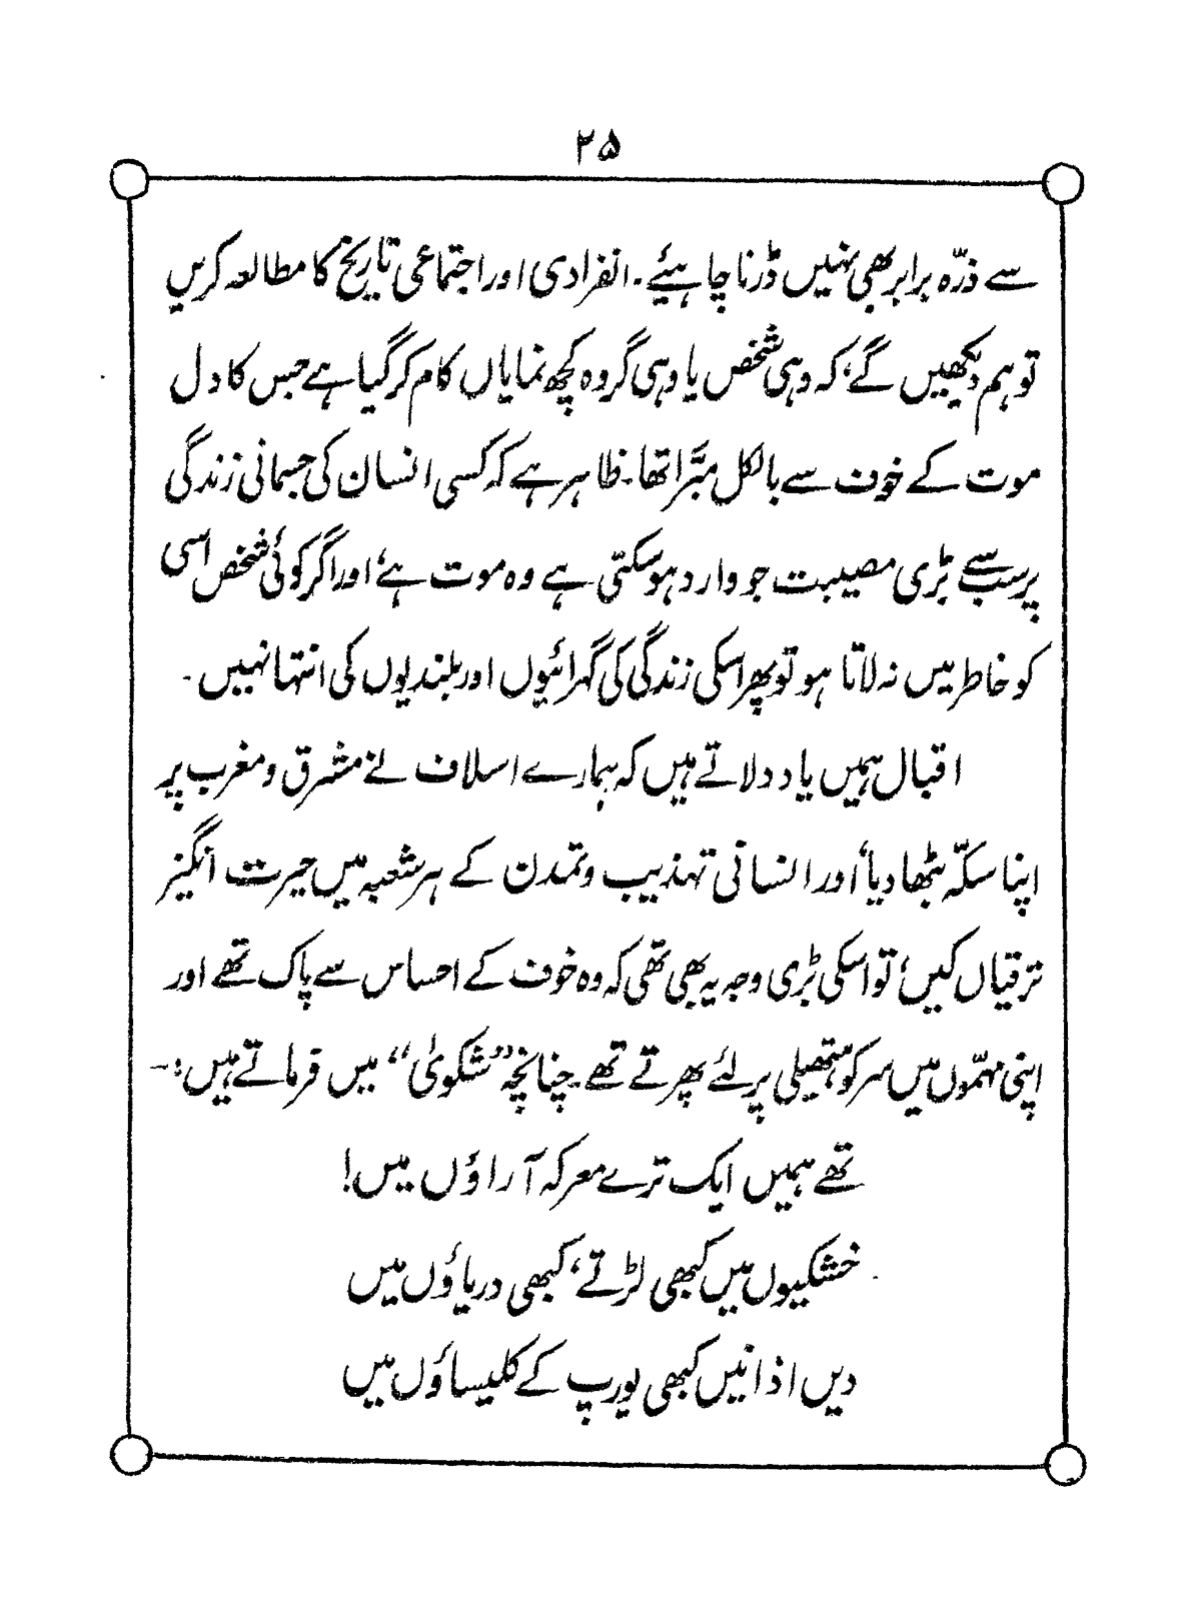 ۲۵
سے ذرّہ برابر بھی نہیں ڈرنا چاہیئے۔ انفرادی اور اجتماعی تاریخ کا مطالعہ کریں
تو ہم دیکھیں گے، کہ وہی شخص یا وہی گروہ کچھ نمایاں کام کر گیا ہے جس کا دل
موت کے خوف سے بالکل مبَّرا تھا۔ ظاہر ہے کہ کسی انسان کی جسمانی زندگی
پر سب سے بڑی مصیبت جو وارد ہو سکتی ہے وہ موت ہے، اور اگر کوئی شخص اسی
کو خاطر میں نہ لاتا ہو تو پھر اسکی زندگی کی گہرائیوں اور بلندیوں کی انتہا نہیں۔
اقبال ہمیں یاد دلاتے ہیں کہ ہمارے اسلاف نے مشرق و مغرب پر
اپنا سکّہ بٹھا دیا، اور انسانی تہذیب و تمدن کے ہر شعبہ میں حیرت انگیز
ترقیاں کیں، تو اسکی بڑی وجہ یہ بھی تھی کہ وہ خوف کے احساس سے پاک تھے اور
اپنی مہمّوں میں سر کو ہتھیلی پر لئے پھرتے تھے۔ چنانچہ ”شکویٰ“ میں فرماتے ہیں:-
تھے ہمیں ایک ترے معرکہ آراؤں میں!
خشکیوں میں کبھی لڑتے، کبھی دریاؤں میں
دیں اذانیں کبھی یورپ کے کلیساؤں میں